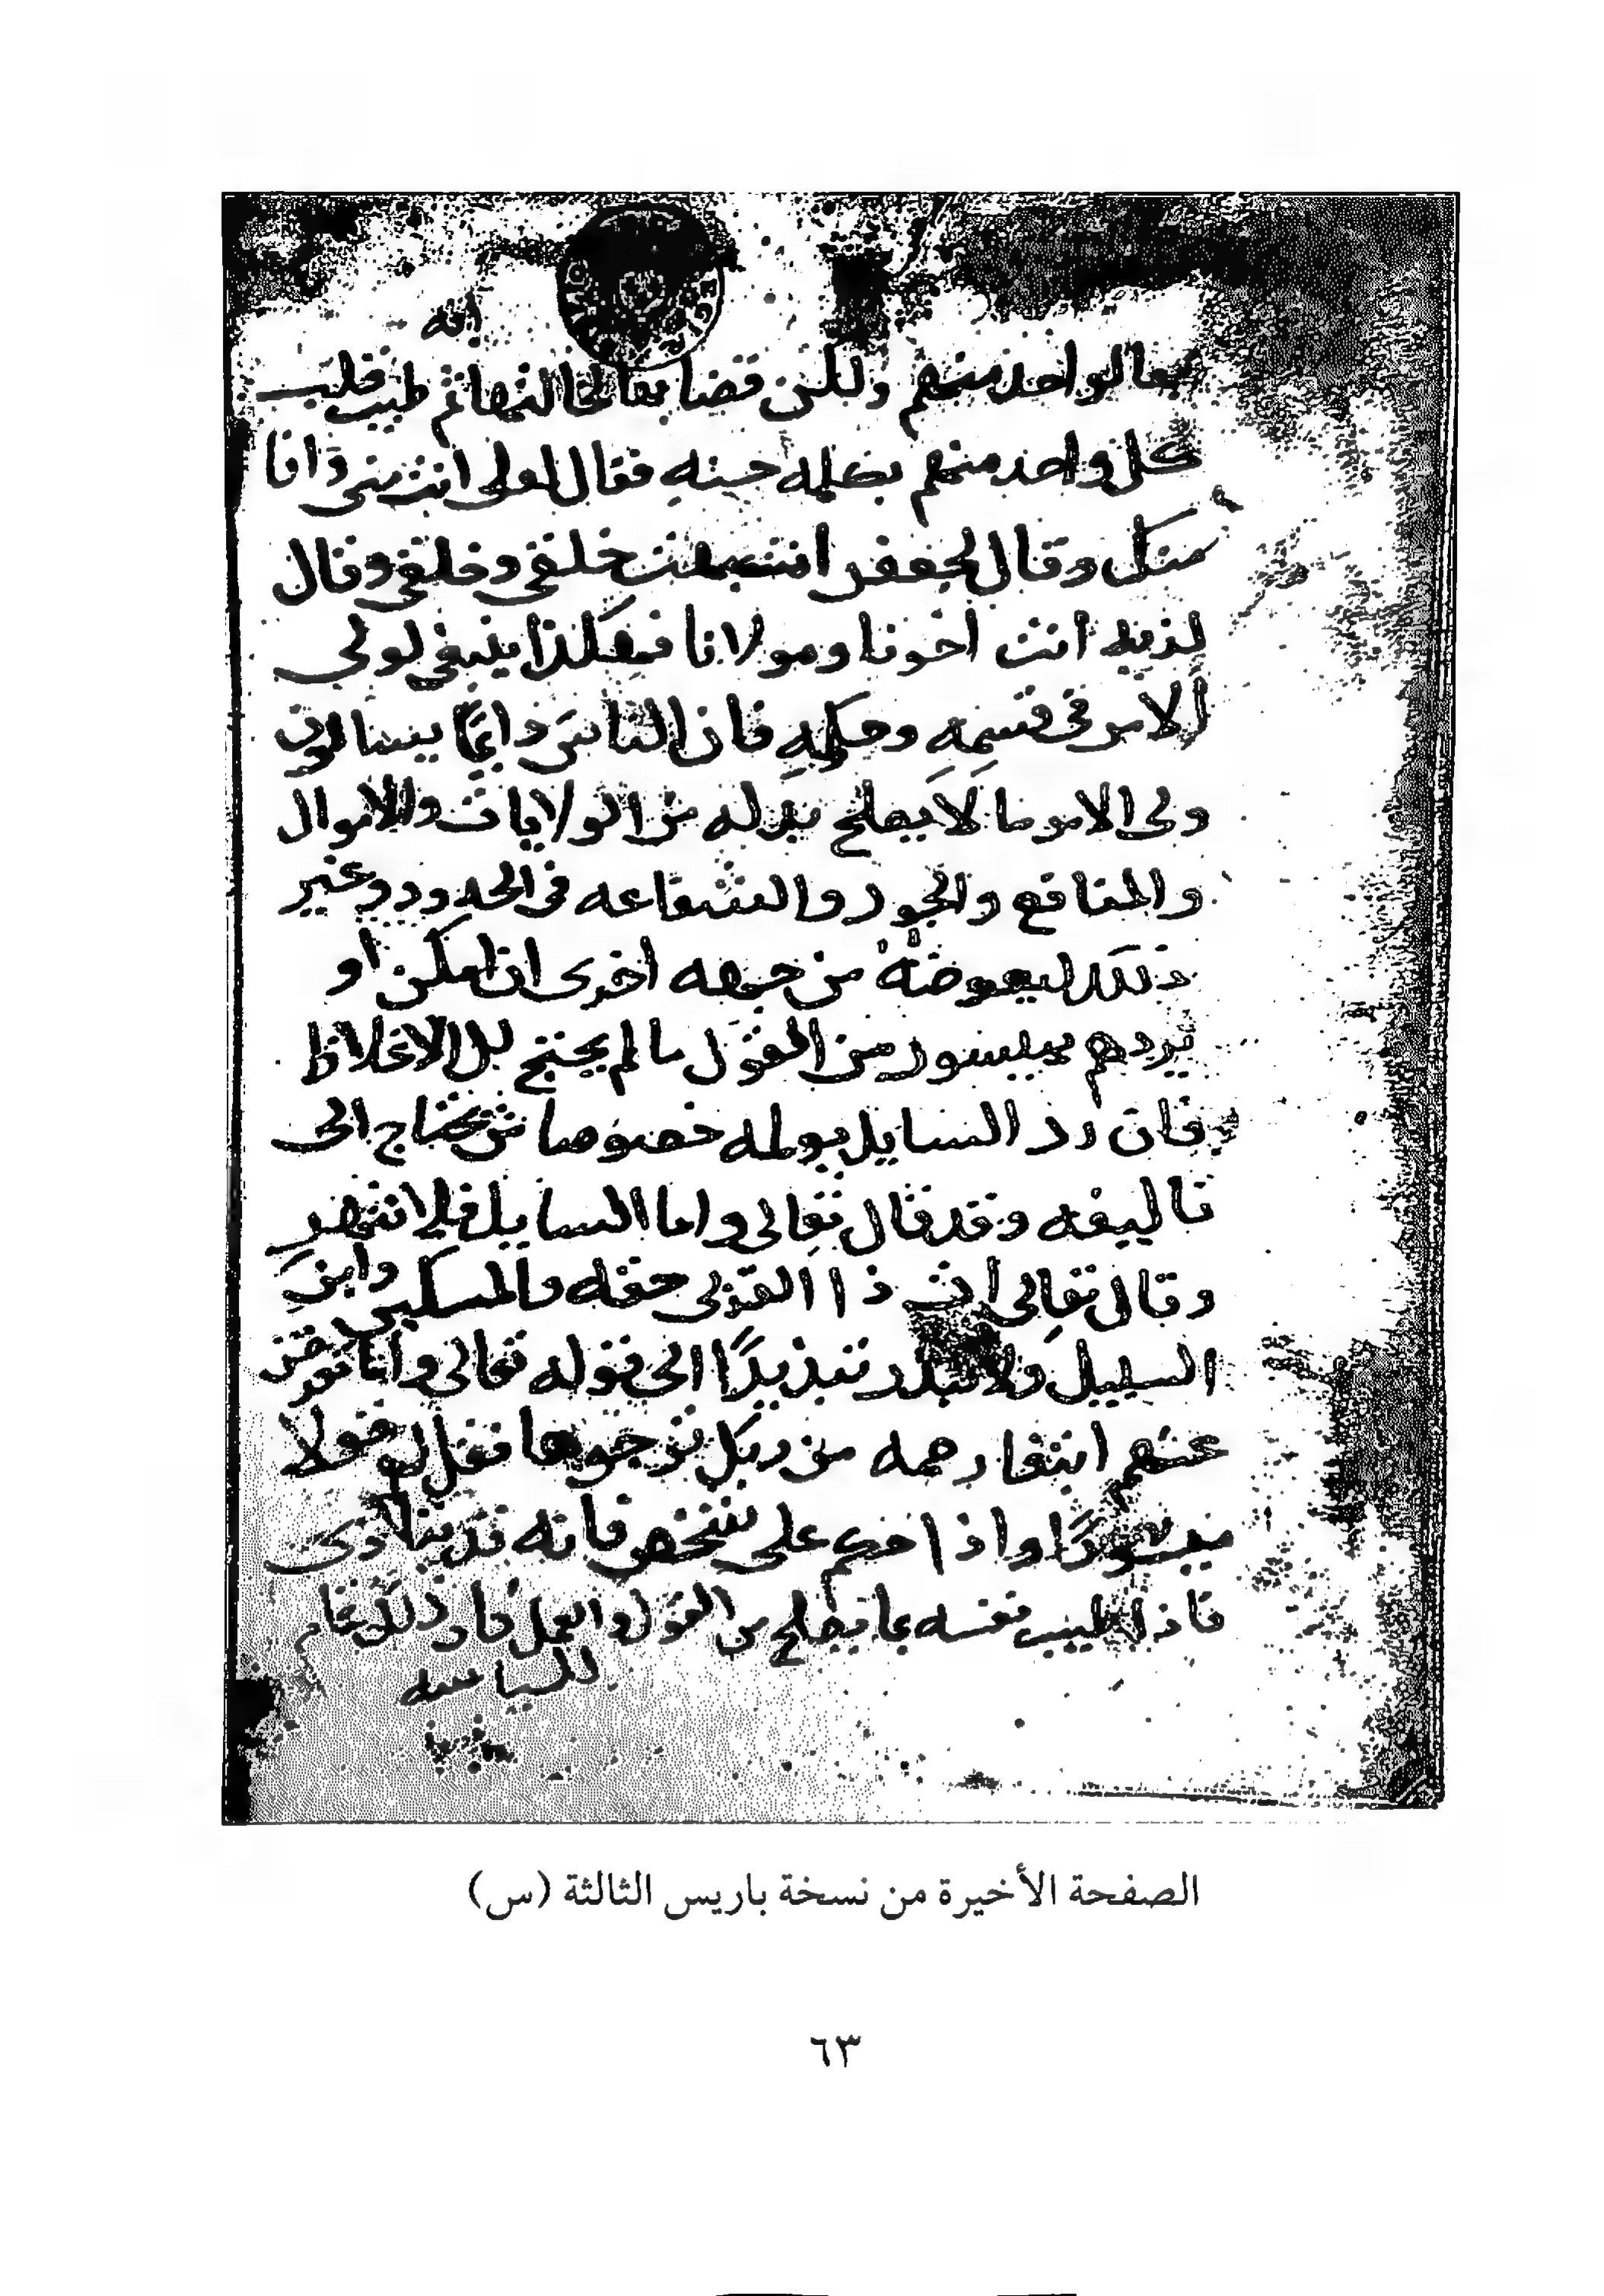 بها لواحد منهم ولكن قضا بها لخالتها ثم طيب قلب
كل واحد منهم بكلمه حسنه فقال لعلي انت مني وانا
منك وقال لجعفر اشبهت خلقي وخلقي وقال
لزيد أنت أخونا ومولانا فهكذا ينبغي لولي
الامر في قسمه وحكمه فان الناس دائما يسالون
ولي الامر ما لا يصلح بذله من الولايات والاموال
والمنافع والجور والشفاعه في الحدود وغير
ذلك ليعوضه من جهه اخرى ان امكن أو
يردهم بميسور من القول ما لم يحتج الاغلاظ
فان رد السايل يولمه خصوصا من يحتاج الى
تاليفه وقد قال تعالى واما السايل فلا تنهر
وقال تعالى ات ذا القربى حقه والمسكين وابن
السبيل ولا تبذر تبذيرًا الى قوله تعالى واما تعرضن
عنهم ابتغا رحمه من ربك ترجوها فقل لهم قولا
ميسورًا واذا حكم على شخص فانه قد يتاذى
فاذا طيب نفسه بما يصلح من القول والعمل كان ذلك تمام
السياسه
الصفحة الأخيرة من نسخة باريس الثالثة (س)
٦٣